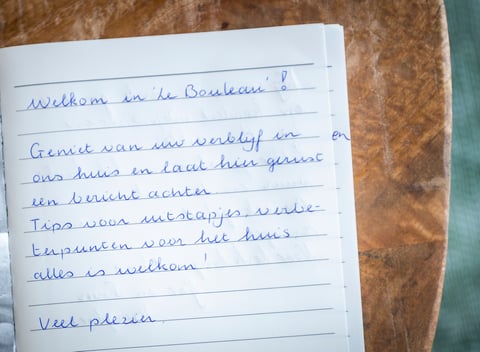 Welkom in 'le Bouleau' !
Geniet van uw verblijf in
en
ons huis en laat hier gerust
een bericht achter.
Tips voor uitstapjes, verbe-
terpunten voor het huis
alles is welkom!
Veel plezier.